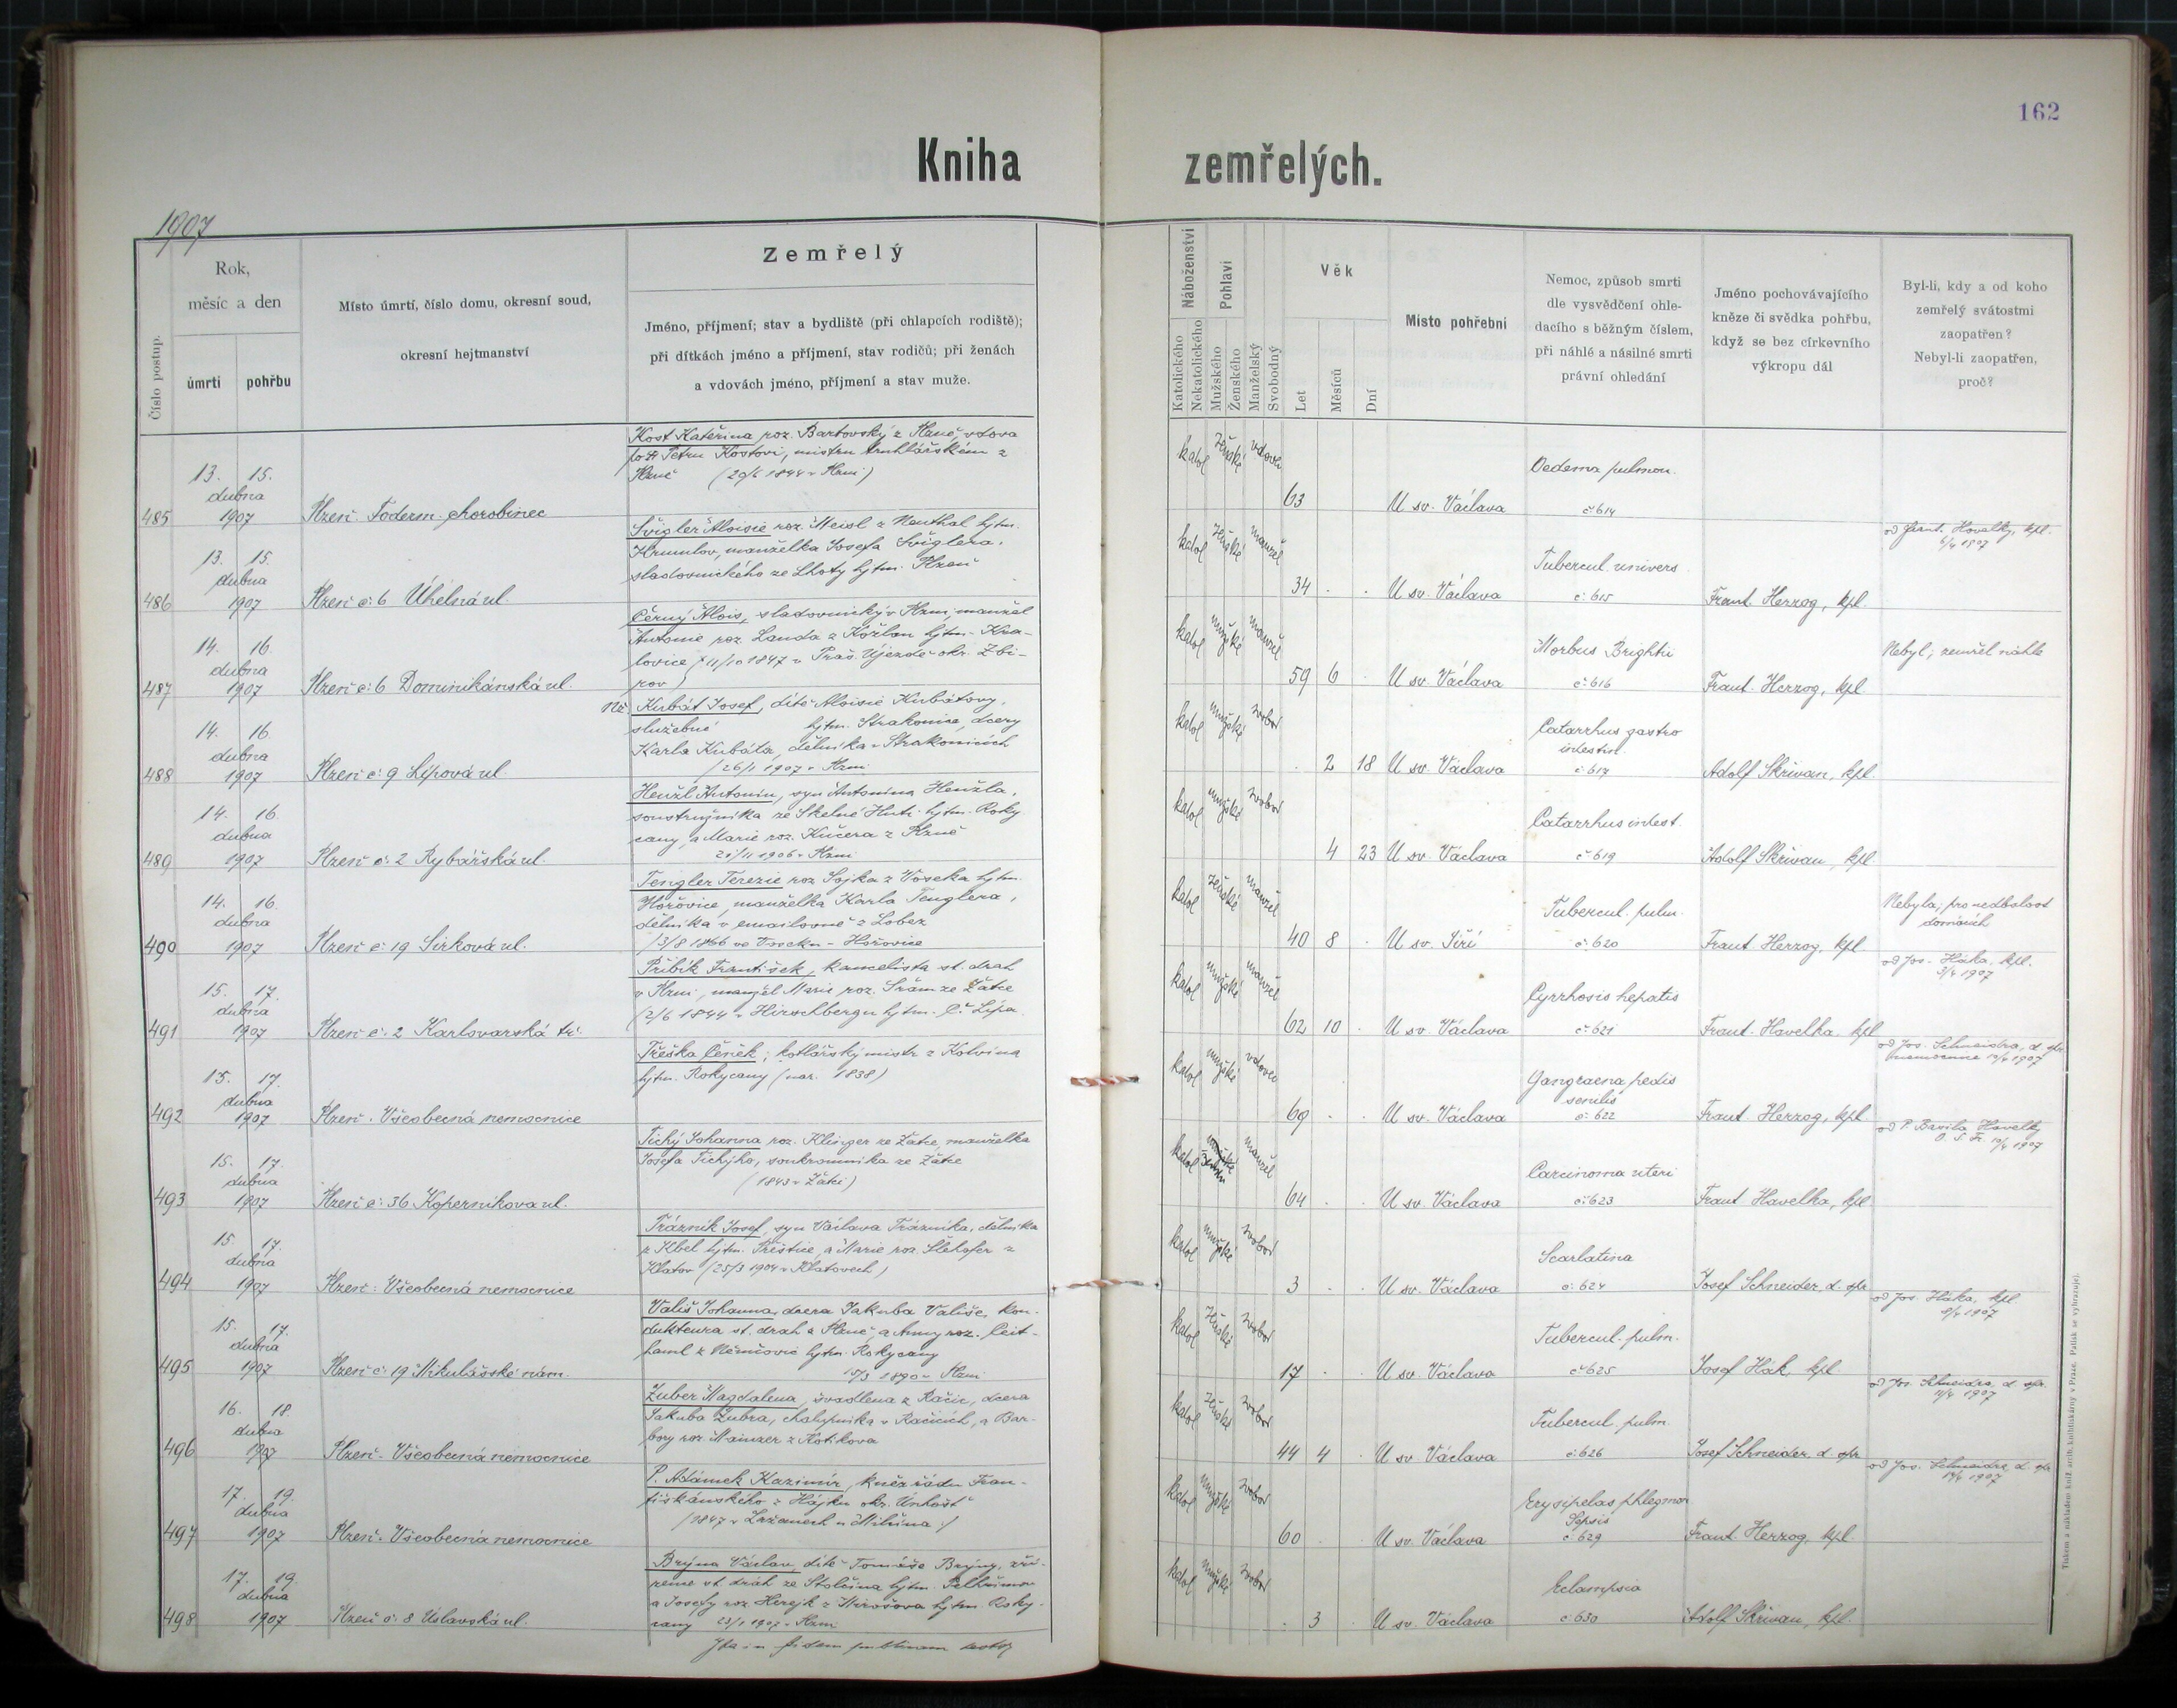 162
Kniha zemřelých.
1907
Číslo postup.
Rok,
měsíc a den
úmrtí
pohřbu
Místo úmrtí, číslo domu, okresní soud,
okresní hejtmanství
Zemřelý
Jméno, příjmení; stav a bydliště (při chlapcích rodiště);
při dítkách jméno a příjmení, stav rodičů; při ženách
a vdovách jméno, příjmení a stav muže.
Náboženství
Katolického
Nekatolického
Pohlaví
Mužského
Ženského
Manželský
Svobodný
Věk
Let
Měsíců
Dní
Místo pohřební
Nemoc, způsob smrti
dle vysvědčení ohle-
dacího s běžným číslem,
při náhlé a násilné smrti
právní ohledání
Jméno pochovávajícího
kněze či svědka pohřbu,
když se bez církevního
výkropu dál
Byl-li, kdy a od koho
zemřelý svátostmi
zaopatřen?
Nebyl-li zaopatřen,
proč?
485
13. 15.
dubna
1907
Plzeň. Toderm. chorobinec
Kost Kateřina roz. Bartovský z Plzně, vdova
po † Petru Kostovi, mistru truhlářském z
Plzně (29/6 1844 v Plzni)
katol ženské vdova
63
U sv. Václava
Oedema pulmon.
č. 614
486
13. 15.
dubna
1907
Plzeň č. 6 Úhelná ul.
Švigler Aloisie roz. Meisl z Neuthal hjtm.
Krumlov, manželka Josefa Šviglera,
sladovnického ze Lhoty hjtm. Plzeň
katol ženské manžel
34
U sv. Václava
Tubercul. univers
č. 615
Frant. Herzog, kpl.
od Frant. Havelky, kpl.
6/4 1907
487
14. 16.
dubna
1907
Plzeň č. 6 Dominikánská ul.
Černý Alois, sladovnický v Plzni, manžel
Antonie roz. Landa z Kožlan hjtm. Kra-
lovice (11/10 1847 v Praš. Újezdě okr. Zbi-
rov)
katol mužské manžel
59 6
U sv. Václava
Morbus Brightii
č. 616
Frant. Herzog, kpl.
Nebyl; zemřel náhle
488
14. 16.
dubna
1907
Plzeň č. 9 Lípová ul.
Kubát Josef, dítě Aloisie Kubátovy,
služebné hjtm. Strakonice, dcery
Karla Kubáta, dělníka v Strakonicích
(26/1 1907 v Plzni
katol mužské svobod
2 18
U sv. Václava
Catarrhus gastro
intestin.
č. 617
Adolf Skřivan, kpl.
489
14. 16.
dubna
1907
Plzeň č. 2 Rybářská ul.
Henžl Antonín, syn Antonína Henžla,
soustružníka ze Skelné Huti hjtm. Roky
cany, a Marie roz. Kučera z Plzně
21/11 1906 v Plzni
katol mužské svobod
4 23
U sv. Václava
Catarrhus intest.
č. 619
Adolf Skřivan, kpl
490
14. 16.
dubna
1907
Plzeň č. 19 Sirková ul.
Tengler Terezie roz. Sojka z Voseka hjtm.
Hořovice, manželka Karla Tenglera,
dělníka v emailovně z Lobez
(3/8 1866 ve Voseku - Hořovice
katol ženské manžel
40 8
U sv. Jiří
Tubercul. pulm.
č. 620
Frant. Herzog, kpl.
Nebyla; pro nedbalost
domácích
491
15. 17.
dubna
1907
Plzeň č. 2 Karlovarská tř.
Přibík František, kancelista st. drah
v Plzni, manžel Marie roz. Šrám ze Žatce
(2/6 1844 v Hirschbergu hjtm. Č. Lípa
katol mužské manžel
62 10
U sv. Václava
Cyrrhosis hepatis
č. 621
Frant. Havelka, kpl
od Jos. Háka, kpl.
3/4 1907
492
15. 17.
dubna
1907
Plzeň. Všeobecná nemocnice
Třeška Čeněk; kotlářský mistr z Kolvína
hjtm. Rokycany (nar. 1838)
katol mužské vdovec
69
U sv. Václava
Gangraena pedis
senilis
č. 622
Frant. Herzog, kpl.
od Jos. Schneidra, d. spr.
nemocnice 10/4 1907
493
15. 17.
dubna
1907
Plzeň č. 36 Koperníkova ul.
Tichý Johanna roz. Klinger ze Žatce, manželka
Josefa Tichýho, soukromníka ze Žatce
(1843 v Žatci)
katol ženské manžel
64
U sv. Václava
Carcinoma uteri
č. 623
Frant. Havelka, kpl
od P. Havelky
O. S. Fr. 10/4 1907
494
15. 17.
dubna
1907
Plzeň. Všeobecná nemocnice
Trázník Josef, syn Václava Trázníka, dělníka
z Kbel hjtm. Přeštice, a Marie roz. Šlehofer z
Klatov (25/3 1904 v Klatovech)
katol mužské svobod
3
U sv. Václava
Scarlatina
č. 624
Josef Schneider d. spr.
495
15. 17.
dubna
1907
Plzeň č. 19 Mikulášské nám.
Vališ Johanna, dcera Jakuba Vališe, kon-
dukteura st. drah z Plzně, a Anny roz. Ceit-
haml z Němčovic hjtm. Rokycany
15/3 1890 v Plzni
katol ženské svobod
17
U sv. Václava
Tubercul. pulm.
č. 625
Josef Hák, kpl.
od Jos. Háka, kpl.
9/4 1907
496
16. 18.
dubna
1907
Plzeň. Všeobecná nemocnice
Zuber Magdalena, švadlena z Račic, dcera
Jakuba Zubra, chalupníka v Račicích, a Bar-
bory roz. Mainzer z Kotíkova
katol ženské svobod
44 4
U sv. Václava
Tubercul. pulm.
č. 626
Josef Schneider, d. spr.
od Jos. Schneidra, d. spr.
11/4 1907
497
17. 19.
dubna
1907
Plzeň. Všeobecná nemocnice
P. Adámek Kazimír, kněz řádu Fran-
tiškánského z Hájku okr. Unhošť
(1847 v Zržanech u Milčína)
katol mužské svobod
60
U sv. Václava
Erysipelas phlegmon
Sepsis
č. 629
Frant. Herzog, kpl.
od Jos. Schneidra d. spr.
14/4 1907
498
17. 19.
dubna
1907
Plzeň č. 8 Úslavská ul.
Brýna Václav, dítě Tomáše Brýny, zří-
zence st. drah ze Stolčína hjtm. Pelhřimov
a Josefy roz. Herejk z Mirošova hjtm. Roky-
cany 23/1 1907 v Plzni
katol mužské svobod
3
U sv. Václava
Eclampsia
č. 630
Adolf Skřivan, kpl.
Tiskem a nákladem kníž. arcib. knihtiskárny v Praze. Patisk se vyhrazuje.